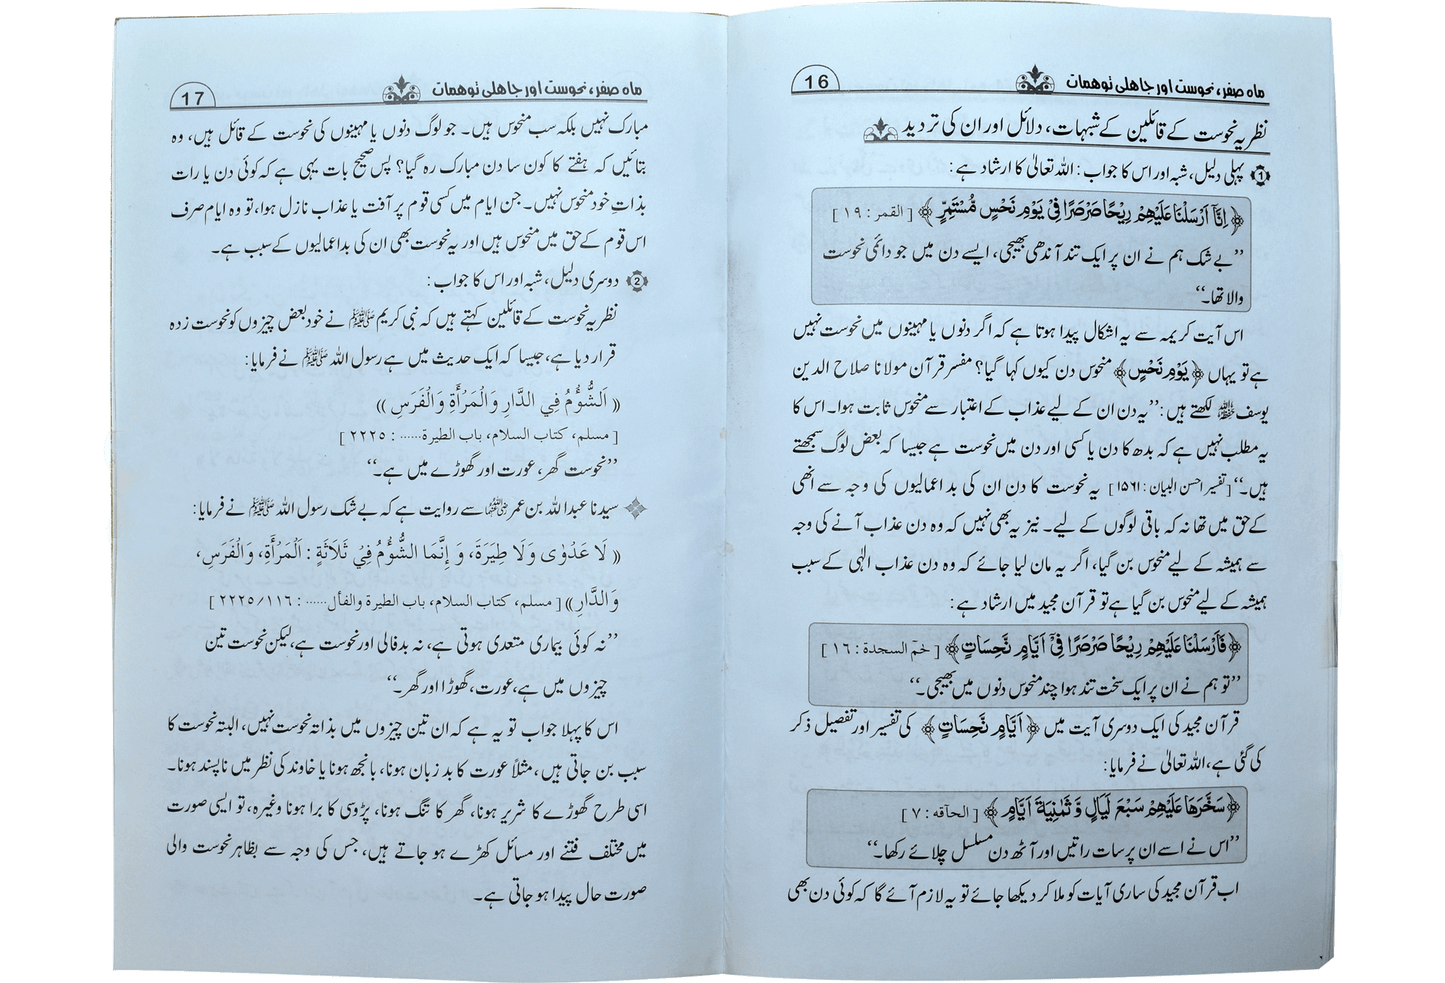 ماہ صفر، نحوست اور جاهلی توهمات 16
نظریہ نحوست کے قائلین کے شبہات، دلائل اور ان کی تردید
1 پہلی دلیل، شبہ اور اس کا جواب: اللہ تعالیٰ کا ارشاد ہے:
﴿ اِنَّاۤ اَرْسَلْنَا عَلَيْهِمْ رِيْحًا صَرْصَرًا فِيْ يَوْمِ نَحْسٍ مُّسْتَمِرٍّ ﴾ [ القمر : ١٩ ]
’’بے شک ہم نے ان پر ایک تند آندھی بھیجی، ایسے دن میں جو دائمی نحوست
والا تھا۔‘‘
اس آیت کریمہ سے یہ اشکال پیدا ہوتا ہے کہ اگر دنوں یا مہینوں میں نحوست نہیں
ہے تو یہاں ﴿ يَوْمِ نَحْسٍ ﴾ منحوس دن کیوں کہا گیا؟ مفسر قرآن مولانا صلاح الدین
یوسف ﷾ لکھتے ہیں: ’’یہ دن ان کے لیے عذاب کے اعتبار سے منحوس ثابت ہوا۔ اس کا
یہ مطلب نہیں ہے کہ بدھ کا دن یا کسی اور دن میں نحوست ہے جیسا کہ بعض لوگ سمجھتے
ہیں۔‘‘ [تفسیر احسن البیان: ۱۵۶۱] یہ نحوست کا دن ان کی بد اعمالیوں کی وجہ سے انھی
کے حق میں تھا نہ کہ باقی لوگوں کے لیے۔ نیز یہ بھی نہیں کہ وہ دن عذاب آنے کی وجہ
سے ہمیشہ کے لیے منحوس بن گیا، اگر یہ مان لیا جائے کہ وہ دن عذاب الٰہی کے سبب
ہمیشہ کے لیے منحوس بن گیا ہے تو قرآن مجید میں ارشاد ہے:
﴿ فَاَرْسَلْنَا عَلَيْهِمْ رِيْحًا صَرْصَرًا فِيْۤ اَيَّامٍ نَّحِسَاتٍ ﴾ [ حٰمٓ السجدة : ١٦ ]
’’تو ہم نے ان پر ایک سخت تند ہوا چند منحوس دنوں میں بھیجی۔‘‘
قرآن مجید کی ایک دوسری آیت میں ﴿ اَيَّامٍ نَّحِسَاتٍ ﴾ کی تفسیر اور تفصیل ذکر
کی گئی ہے، اللہ تعالیٰ نے فرمایا:
﴿ سَخَّرَهَا عَلَيْهِمْ سَبْعَ لَيَالٍ وَّ ثَمٰنِيَةَ اَيَّامٍ ﴾ [ الحآقه : ٧ ]
’’اس نے اسے ان پر سات راتیں اور آٹھ دن مسلسل چلائے رکھا۔‘‘
اب قرآن مجید کی ساری آیات کو ملا کر دیکھا جائے تو یہ لازم آئے گا کہ کوئی دن بھی
ماہ صفر، نحوست اور جاهلی توهمات 17
مبارک نہیں بلکہ سب منحوس ہیں۔ جو لوگ دنوں یا مہینوں کی نحوست کے قائل ہیں، وہ
بتائیں کہ ہفتے کا کون سا دن مبارک رہ گیا؟ پس صحیح بات یہی ہے کہ کوئی دن یا رات
بذاتِ خود منحوس نہیں۔ جن ایام میں کسی قوم پر آفت یا عذاب نازل ہوا، تو وہ ایام صرف
اس قوم کے حق میں منحوس ہیں اور یہ نحوست بھی ان کی بداعمالیوں کے سبب ہے۔
2 دوسری دلیل، شبہ اور اس کا جواب:
نظریہ نحوست کے قائلین کہتے ہیں کہ نبی کریم ﷺ نے خود بعض چیزوں کو نحوست زدہ
قرار دیا ہے، جیسا کہ ایک حدیث میں ہے رسول اللہ ﷺ نے فرمایا:
(( اَلشُّؤْمُ فِي الدَّارِ وَالْمَرْأَةِ وَالْفَرَسِ ))
[ مسلم، كتاب السلام، باب الطيرة...... : ٢٢٢٥ ]
’’نحوست گھر، عورت اور گھوڑے میں ہے۔‘‘
سیدنا عبداللہ بن عمر ؓ سے روایت ہے کہ بے شک رسول اللہ ﷺ نے فرمایا:
(( لَا عَدْوٰى وَلَا طِيَرَةَ، وَ إِنَّمَا الشُّؤْمُ فِيْ ثَلَاثَةٍ : اَلْمَرْأَةِ، وَالْفَرَسِ،
وَالدَّارِ)) [ مسلم، كتاب السلام، باب الطيرة والفأل...... : ٢٢٢٥/١١٦ ]
’’نہ کوئی بیماری متعدی ہوتی ہے، نہ بدفالی اور نحوست ہے، لیکن نحوست تین
چیزوں میں ہے، عورت، گھوڑا اور گھر۔‘‘
اس کا پہلا جواب تو یہ ہے کہ ان تین چیزوں میں بذاتہ نحوست نہیں، البتہ نحوست کا
سبب بن جاتی ہیں، مثلاً عورت کا بد زبان ہونا، بانجھ ہونا یا خاوند کی نظر میں ناپسند ہونا۔
اسی طرح گھوڑے کا شریر ہونا، گھر کا تنگ ہونا، پڑوسی کا برا ہونا وغیرہ، تو ایسی صورت
میں مختلف فتنے اور مسائل کھڑے ہو جاتے ہیں، جس کی وجہ سے بظاہر نحوست والی
صورت حال پیدا ہو جاتی ہے۔